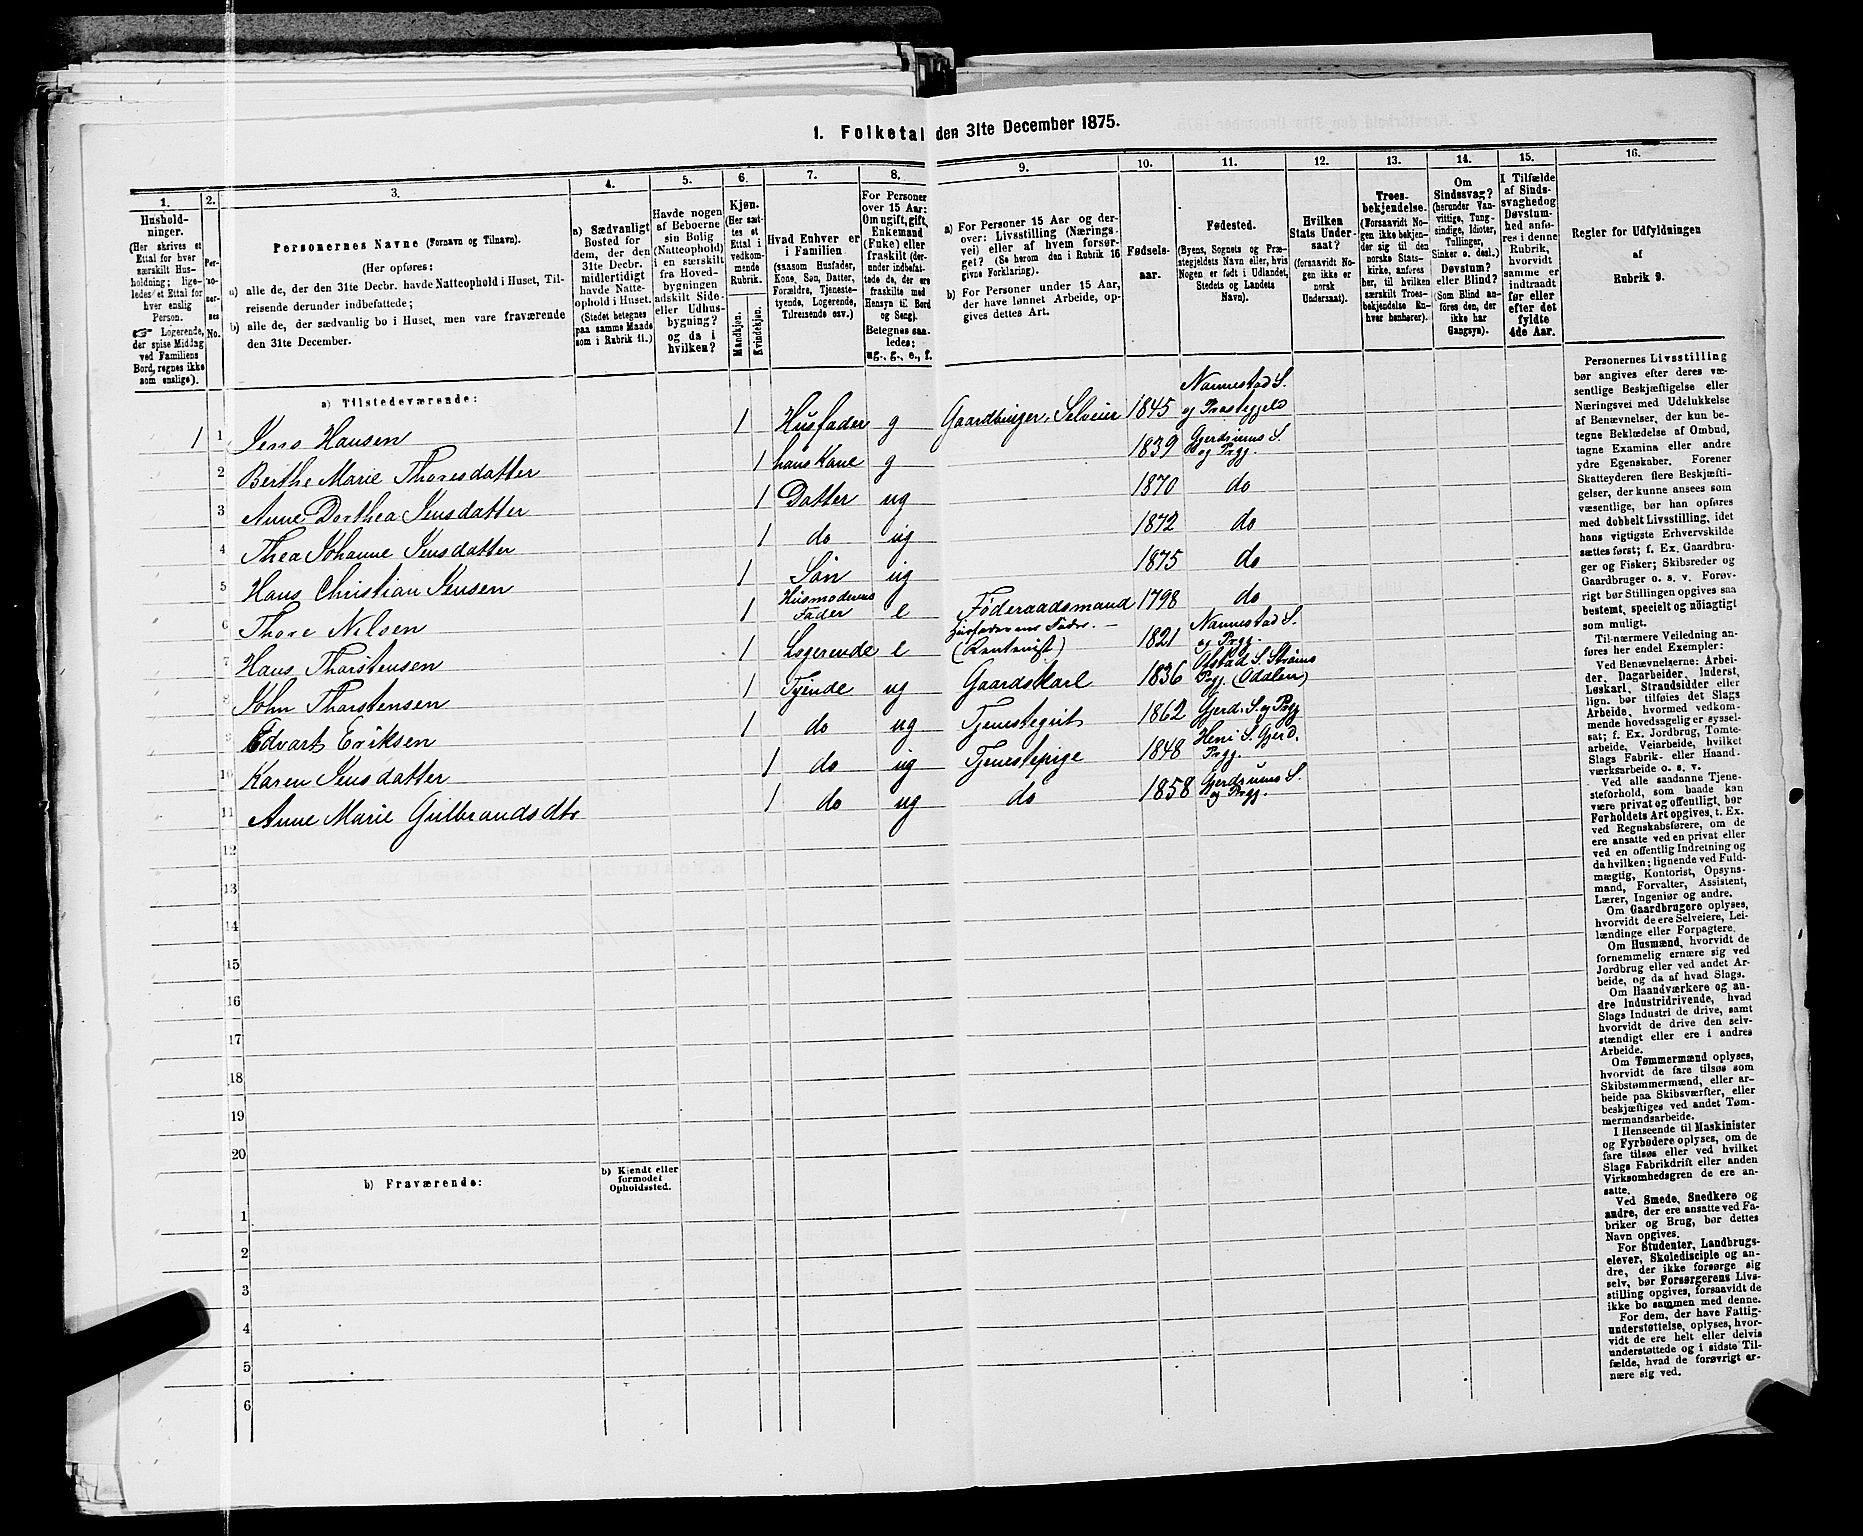 1. Folketal den 31te December 1875.
1.
Hushold-
ninger.
(Her skrives et
Ettal for hver
særskilt Hus-
holdning; lige-
ledes et Ettal for
hver enslig
Person.
☞ Logerende,
der spise Middag
ved Familiens
Bord, regnes ikke
som enslige).
2.
Per-
so-
ner-
nes
No.
3.
Personernes Navne (Fornavn og Tilnavn).
(Her opføres:
a) alle de, der den 31te Decbr. havde Natteophold i Huset, Til-
reisende derunder indbefattede;
b) alle de, der sædvanlig bo i Huset, men vare fraværende
den 31te December.
4.
a) Sædvanligt
Bosted for
dem, der den
31te Decbr.
midlertidigt
havde Natte-
ophold i Huset.
(Stedet betegnes
paa samme Maade
som i Rubrik 11.)
5.
Havde nogen
af Beboerne
sin Bolig
(Natteophold)
i en særskilt
fra Hoved-
bygningen
adskilt Side-
eller Udhus-
bygning?
og da i
hvilken?
6.
Kjøn.
(Her sæt-
tes et
Ettal i
vedkom-
mende
Rubrik.
Mandkjøn.
Kvindekjøn.
7.
Hvad Enhver er
i Familien
(saasom Husfader,
Kone, Søn, Datter,
Forældre, Tjeneste-
tyende, Logerende,
Tilreisende osv.)
8.
For Personer
over 15 Aar:
Om ugift, gift,
Enkemand
(Enke) eller
fraskilt (der-
under indbefat-
tede de, der ere
fraskilte med
Hensyn til Bord
og Seng).
Betegnes saa-
ledes:
ug., g., e., f.
9.
a) For Personer 15 Aar og der-
over: Livsstilling (Nærings-
vei) eller af hvem forsør-
get? (Se herom den i Rubrik 16
givne Forklaring).
b) For Personer under 15 Aar,
der have lønnet Arbeide, op-
gives dettes Art.
10.
Fødsels-
aar.
11.
Fødested.
(Byens, Sognets og Præ-
stegjeldets Navn eller, hvis
Nogen er født i Udlandet,
Stedets og Landets
Navn).
12.
Hvilken
Stats Under-
saat?
(forsaavidt No-
gen ikke er
norsk
Undersaat).
13.
Troes-
bekjendelse.
(Forsaavidt No-
gen ikke bekjen-
der sig til den
norske Stats-
kirke, anføres
her, til hvilken
særskilt Troes-
bekjendelse En-
hver henhører).
14.
Om
Sindssvag?
(herunder Van-
vittige, Tung-
sindige, Idioter,
Tullinger,
Sinker o. desl.)
Døvstum?
eller Blind?
(Som Blind an-
føres den, der
ikke har
Gangsyn).
15.
I Tilfælde
af Sinds-
svaghed og
Døvstum-
hed anfø-
res i denne
Rubrik,
hvorvidt
samme er
indtraadt
før eller
efter det
fyldte
4de Aar.
16.
Regler for Udfyldningen
af
Rubrik 9.
a) Tilstedeværende:
1 1 Jens Hansen 1 Husfader g Gaardbruger, Selveier 1845 Nannestad S.
og Præstegjeld
2 Berthe Marie Thoresdatter 1 hans Kone g 1839 Gjerdrums S.
og Prgj.
3 Anne Dorthea Jensdatter 1 Datter ug 1870 do
4 Thea Johanne Jensdatter 1 do ug 1872 do
5 Hans Christian Jensen 1 Søn ug 1875 do
6 Thore Nilsen 1 Husmoderens
Fader e Føderaadsmand 1798 do
7 Hans Thorstensen 1 Logerende e Husfaderens Fader.
(Rentenist) 1821 Nannestad S.
og Prgj.
8 John Thorstensen 1 Tyende ug Gaardskarl 1836 Ofstad S. Strøms
Prgj. (Odalen)
9 Edvart Eriksen 1 do ug Tjenestegut 1862 Gjerd. S. og Prgj
10 Karen Jensdatter 1 do ug Tjenestepige 1848 Heni S. Gjerd.
Prgj.
11 Anne Marie Gulbrandsdtr 1 do ug do 1858 Gjerdrums S.
og Prgj.
12
13
14
15
16
17
18
19
20
b) Fraværende:
b) Kjendt eller
formodet
Opholdssted.
1
2
3
4
5
6
Personernes Livsstilling
bør angives efter deres væ-
sentlige Beskjæftigelse eller
Næringsvei med Udelukkelse
af Benævnelser, der kun be-
tegne Beklædelse af Ombud,
tagne Examina eller andre
ydre Egenskaber. Forener
Skatteyderen flere Beskjæfti-
gelser, der kunne ansees som
væsentlige, bør han opføres
med dobbelt Livsstilling, idet
hans vigtigste Erhvervskilde
sættes først; f. Ex. Gaardbru-
ger og Fisker; Skibsreder og
Gaardbruger o. s. v. Forøv-
rigt bør Stillingen opgives saa
bestemt, specielt og nöiagtigt
som muligt.
Til nærmere Veiledning an-
føres her endel Exempler:
Ved Benævnelserne: Arbei-
der, Dagarbeider, Inderst,
Løskarl, Strandsidder eller
lign. bør tilføies det Slags
Arbeide, hvormed vedkom-
mende hovedsagelig er syssel-
sat; f. Ex. Jordbrug, Tomte-
arbeide, Veiarbeide, hvilket
Slags Fabrik- eller Haand-
værksarbeide o. s. v.
Ved alle saadanne Tjene-
steforhold, som baade kan
være privat og offentligt, bør
Forholdets Art opgives, t. Ex.
ved Regnskabsførere, om de
ere ansatte ved en privat eller
ved en offentlig Indretning og
da hvilken; lignende ved Fuld-
mægtig, Kontorist, Opsyns-
mand, Forvalter, Assistent,
Lærer, Ingeniør og andre.
Om Gaardbrugere oplyses,
hvorvidt de ere Selveiere, Lei-
lændinge eller Forpagtere.
Om Husmænd, hvorvidt de
fornemmelig ernære sig ved
Jordbrug eller ved andet Ar-
beide, og da af hvad Slags.
Om Haandværkere og an-
dre Industridrivende, hvad
Slags Industri de drive, samt
hvorvidt de drive den selv-
stændigt eller ere i andres
Arbeide.
Om Tømmermænd oplyses,
hvorvidt de fare tilsøs som
Skibstømmermænd, eller ar-
beide paa Skibsværfter, eller
beskjæftiges ved andet Tøm-
mermandsarbeide.
I Henseende til Maskinister
og Fyrbødere oplyses, om de
fare tilsøs eller ved hvilket
Slags Fabrikdrift eller anden
Virksomhedsgren de ere an-
satte.
Ved Smede, Snedkere og
andre, der ere ansatte ved Fa-
briker og Brug, bør dettes
Navn opgives.
For Studenter, Landbrugs-
elever, Skoledisciple og an-
dre, der ikke forsørge sig
selv, bør Forsørgerens Livs-
stilling opgives, forsaavidt de
ikke bo sammen med denne.
For dem, der have Fattig-
understøttelse, oplyses, hvor-
vidt de ere helt eller delvis
understøttede og i sidste Til-
fælde, hvad de forøvrigt er-
nære sig ved.